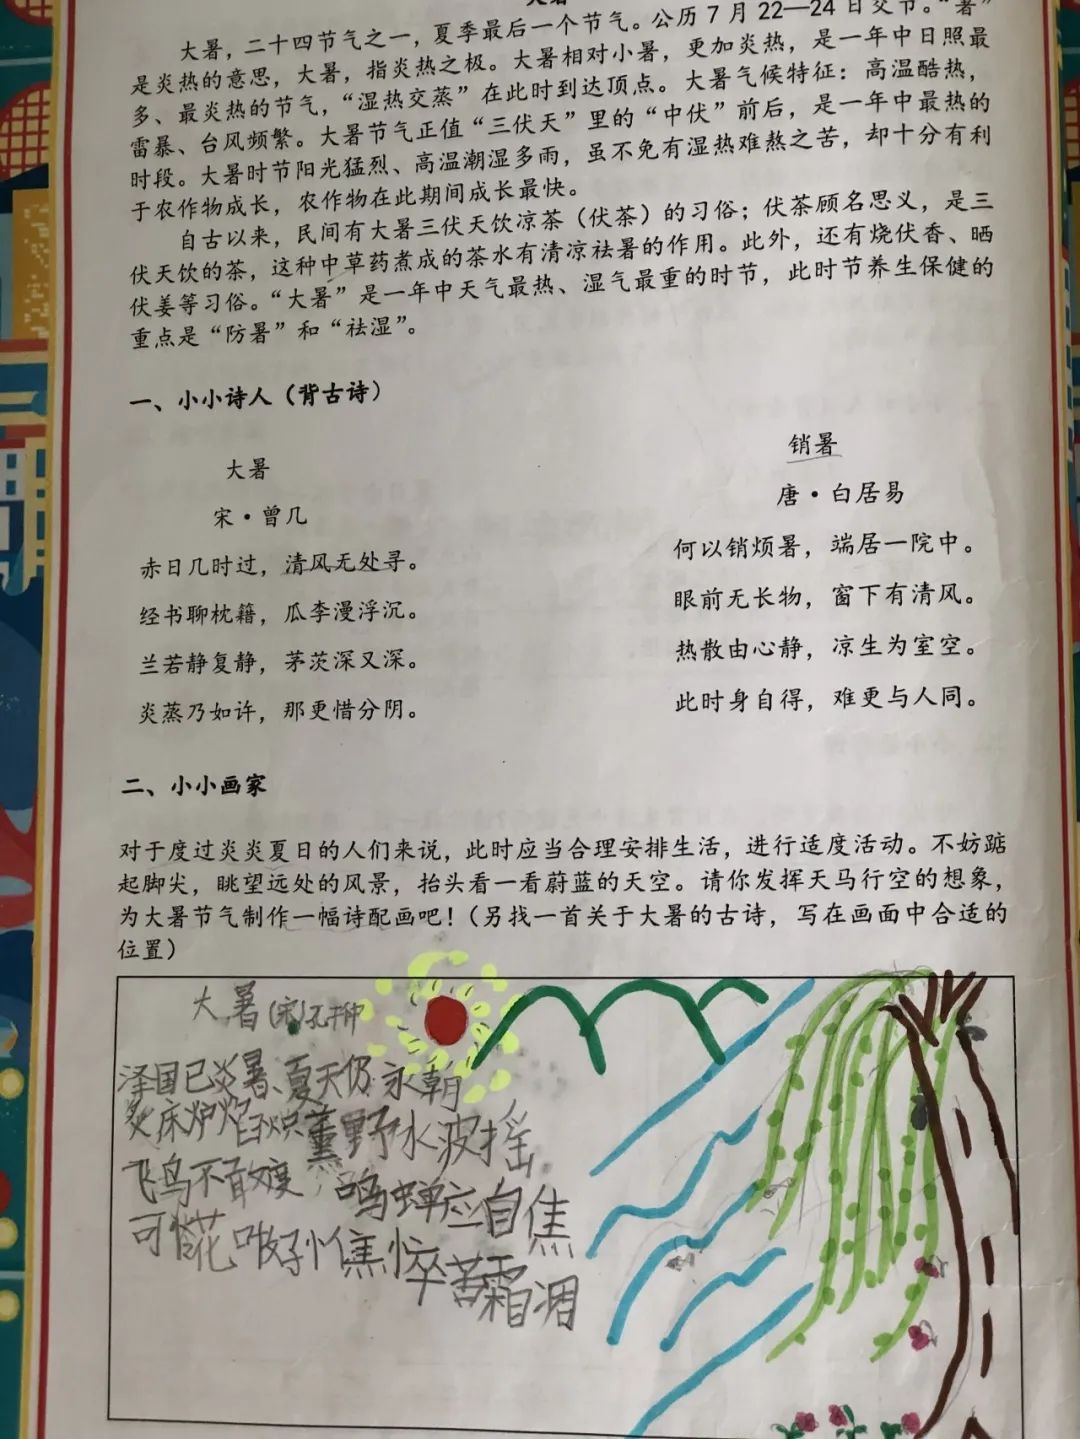 大暑，二十四节气之一，夏季最后一个节气。公历7月22—24日交节。“暑”
是炎热的意思，大暑，指炎热之极。大暑相对小暑，更加炎热，是一年中日照最
多、最炎热的节气，“湿热交蒸”在此时到达顶点。大暑气候特征：高温酷热，
雷暴、台风频繁。大暑节气正值“三伏天”里的“中伏”前后，是一年中最热的
时段。大暑时节阳光猛烈、高温潮湿多雨，虽不免有湿热难熬之苦，却十分有利
于农作物成长，农作物在此期间成长最快。
自古以来，民间有大暑三伏天饮凉茶（伏茶）的习俗；伏茶顾名思义，是三
伏天饮的茶，这种中草药煮成的茶水有清凉祛暑的作用。此外，还有烧伏香、晒
伏姜等习俗。“大暑”是一年中天气最热、湿气最重的时节，此时节养生保健的
重点是“防暑”和“祛湿”。
一、小小诗人（背古诗）
大暑
宋·曾几
赤日几时过，清风无处寻。
经书聊枕籍，瓜李漫浮沉。
兰若静复静，茅茨深又深。
炎蒸乃如许，那更惜分阴。
销暑
唐·白居易
何以销烦暑，端居一院中。
眼前无长物，窗下有清风。
热散由心静，凉生为室空。
此时身自得，难更与人同。
二、小小画家
对于度过炎炎夏日的人们来说，此时应当合理安排生活，进行适度活动。不妨踮
起脚尖，眺望远处的风景，抬头看一看蔚蓝的天空。请你发挥天马行空的想象，
为大暑节气制作一幅诗配画吧！（另找一首关于大暑的古诗，写在画面中合适的
位置）
大暑(宋)孔
泽国已炎暑、夏天仍永朝
炙床炉焰炽 薰野水波摇
飞鸟不敢度，鸣蝉应自焦
可怜花 好憔悴苦霜凋